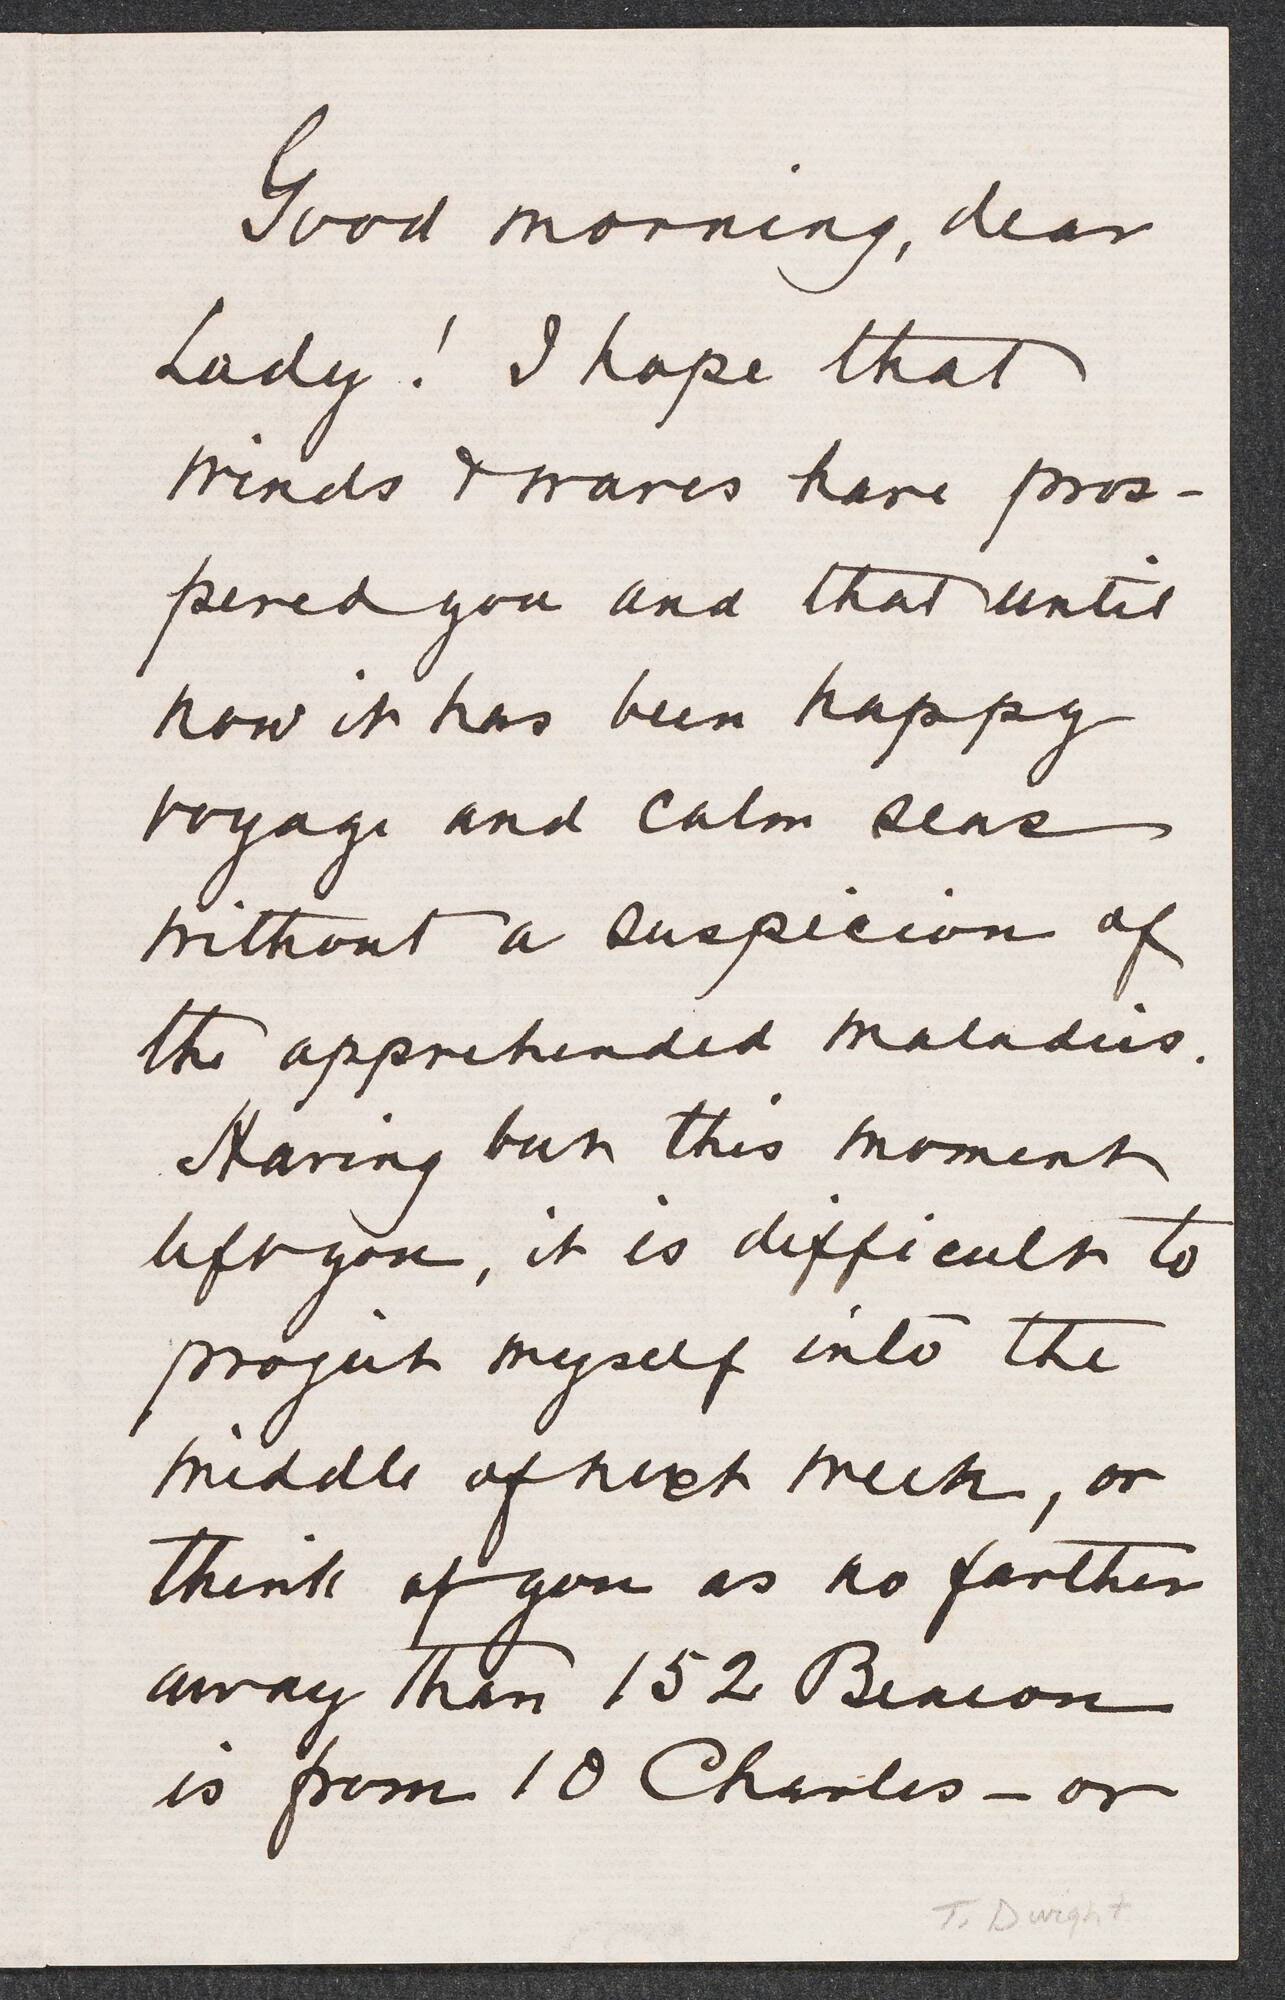 Good morning, dear
Lady! I hope that
winds & waves have pros-
pered you and that until
now it has been happy
voyage and calm seas
without a suspicion of
the apprehended maladies.
Having but this moment
left you, it is difficult to
project myself into the
middle of next week, or
think of you as no farther
away than 152 Beacon
is from 10 Charles – or
T. Dwight